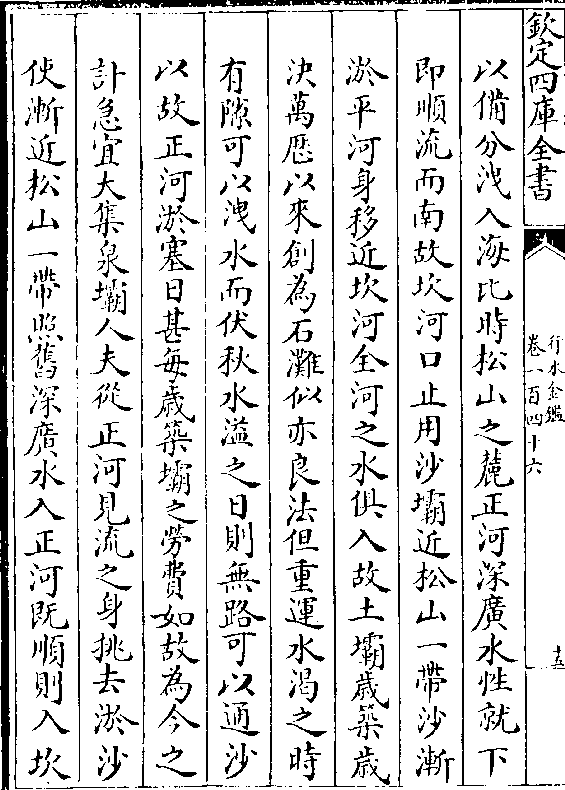 欽定四庫全書
行水金鑑
卷一百四十六
十五
以備分洩入海比時松山之麓正河深廣水性就下
即順流而南故坎河口止用沙壩近松山一帶沙漸
淤平河身移近坎河全河之水俱入故土壩歳築歳
決萬歴以來創為石灘似亦良法但重運水渇之時
有隙可以洩水而伏秋水溢之日則無路可以通沙
以故正河淤塞日甚每歳築壩之勞費如故為今之
計急宜大集泉壩人夫從正河見流之身挑去淤沙
使漸近松山一帶照舊深廣水入正河既順則入坎